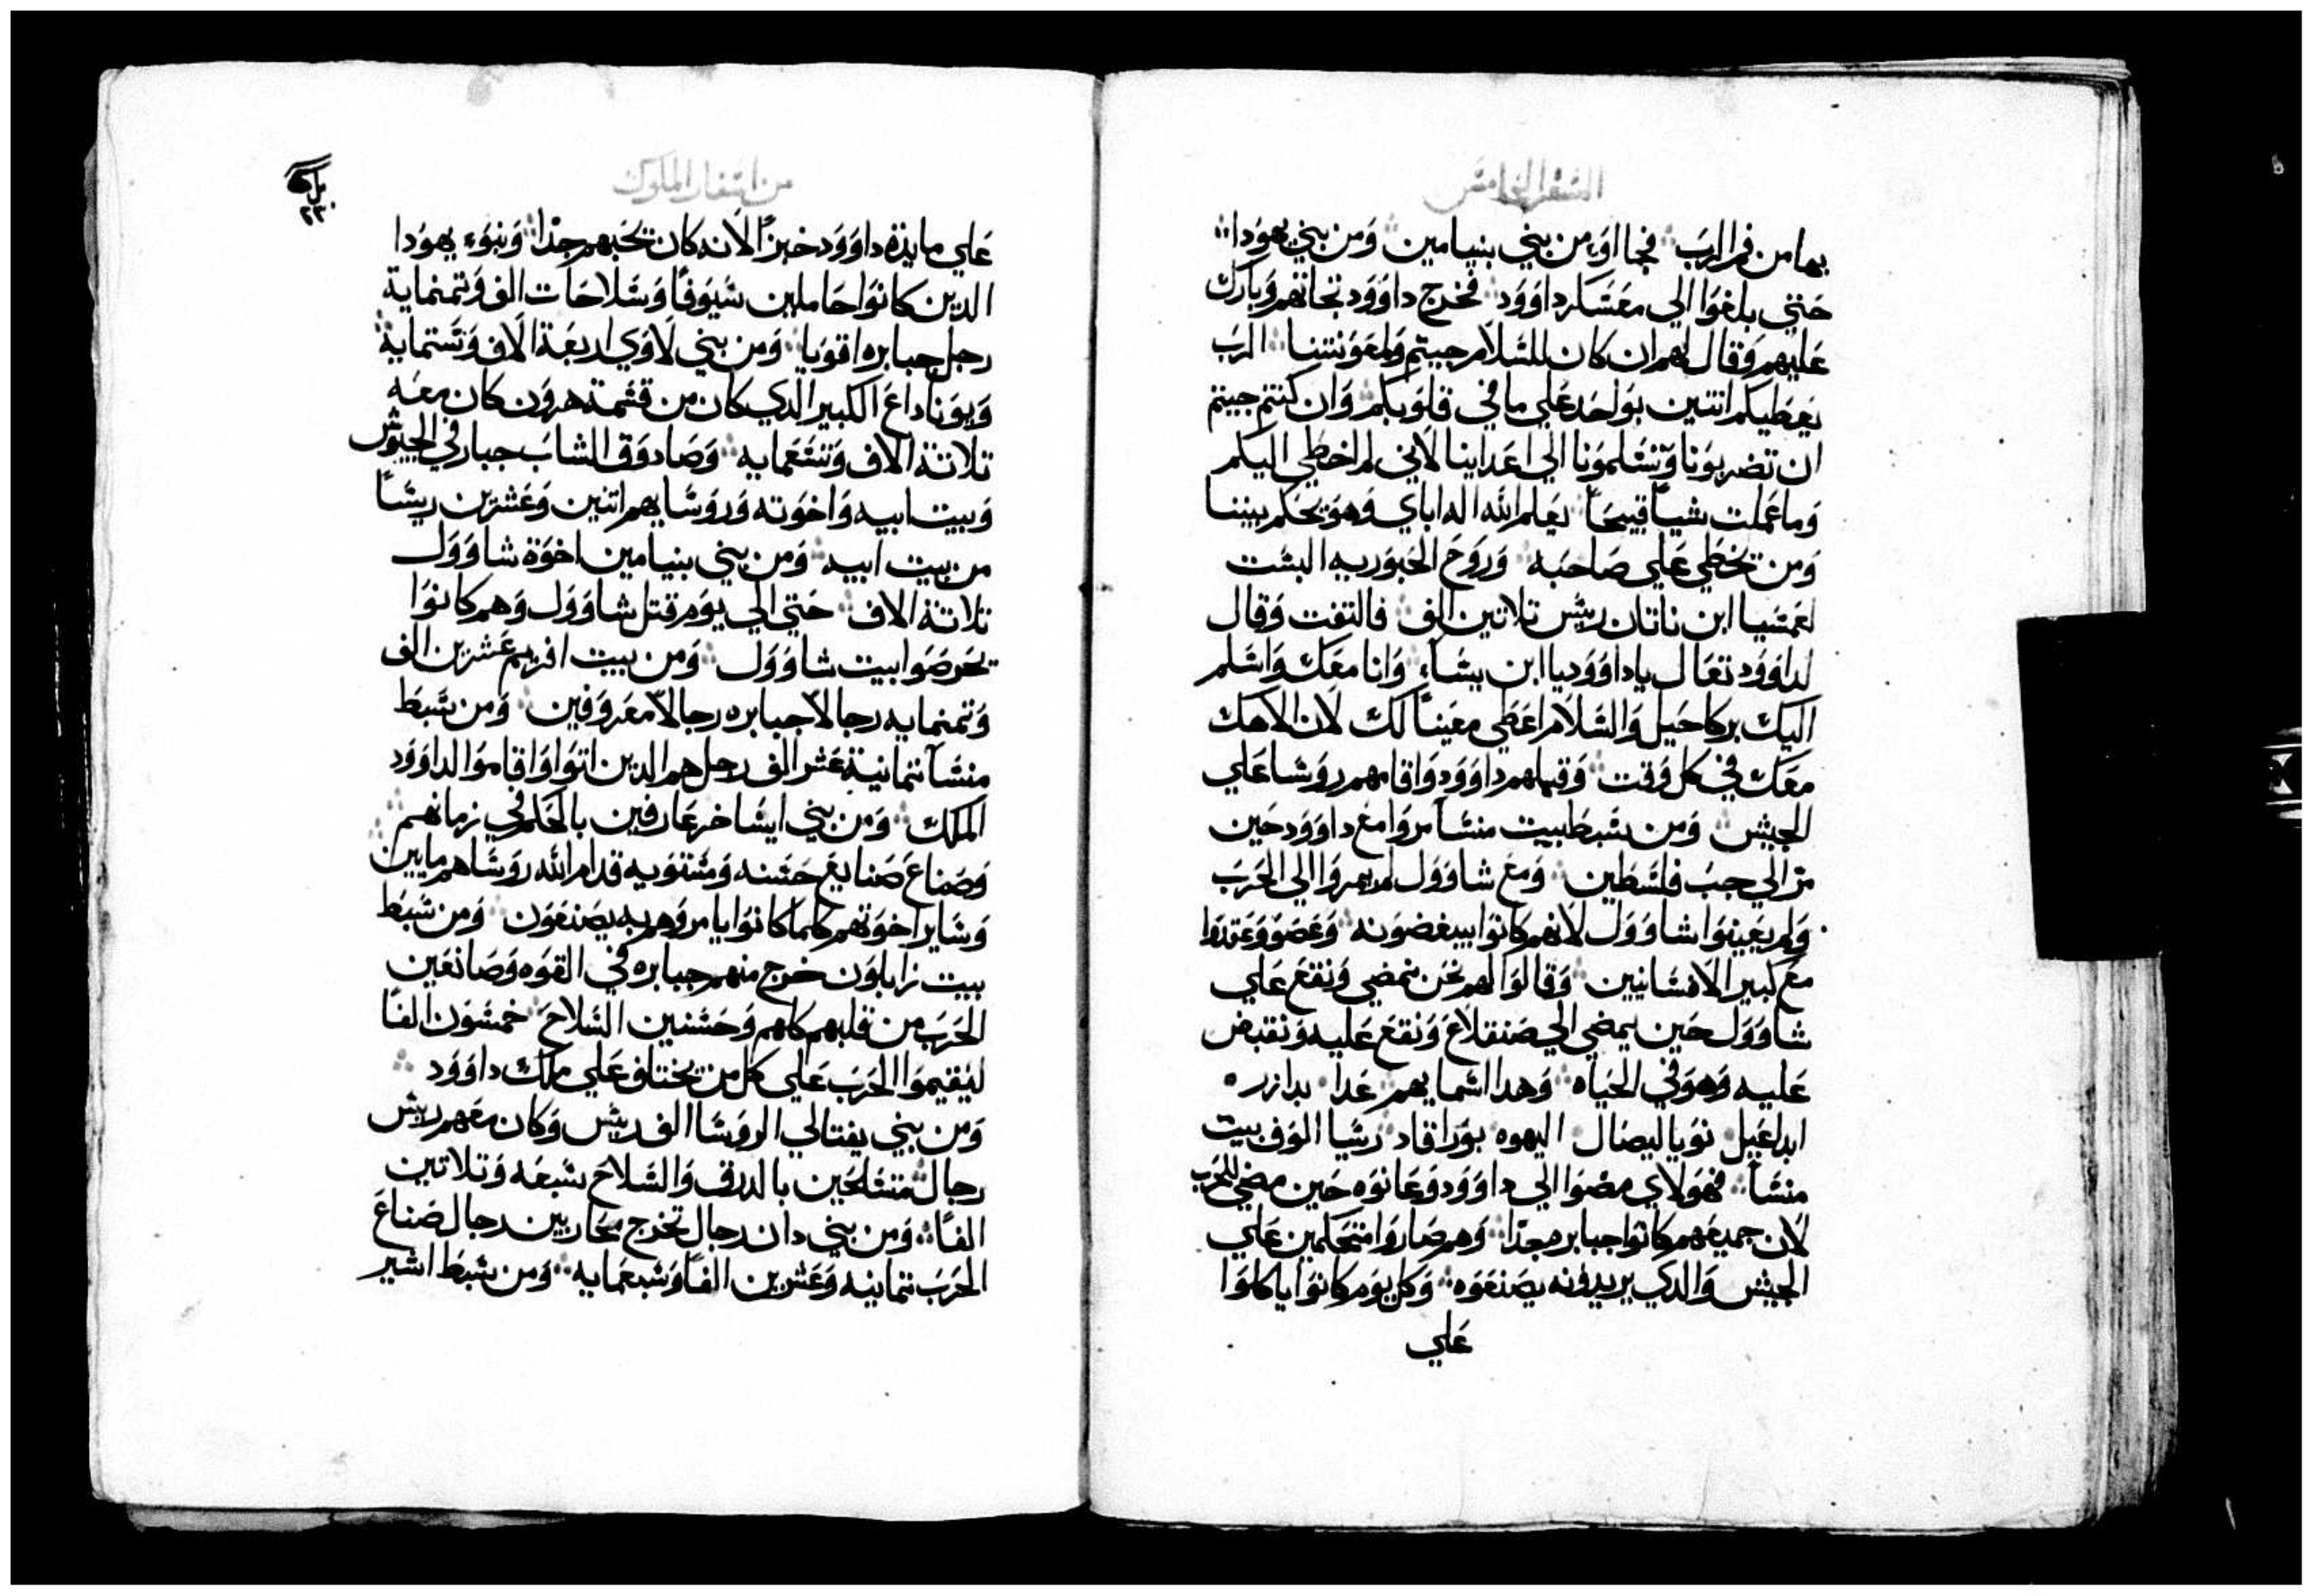 السفر الخامس
بها من فم الرب فجااو من بني بنيامين ومن بني يهودا
حتي بلغوا الي معسكر داوود فخرج داوود تجاتهم وبارك
عليهم وقال لهم ان كان للسلام جيتم ولمعونتنا الرب
يعطيكم اتنين بواحد علي ما في قلوبكم وان كنتم جيتم
ان تضربونا وتسلمونا الي اعداينا لاني لم اخطي اليكم
وما عملت شياً قبيحاً يعلم الله اله اباي وهو يحكم بيننا
ومن تخطي علي صاحبه وروح الحبوريه البست
لعمسيا ابن ناتان ريس تلاتين الف فالتفت وقال
لداوود تعال ياداوود يا ابن يسّاء وانا معك واسلم
اليك بركاحيل والسلام اعطي معيناً لك لان الاهك
معك في كل وقت وقبلهم داوود واقامهم روسا علي
الجيش ومن سبط بيت منسا مروا مع داوود حين
مرّ الي جب فلسطين ومع شاوول لم يمروا الي الحرب
ولم يعينوا شاوول لانهم كانوا يبغضونه وعصوو وعقدوا
مع كبير الافسانيين وقالوا لهم نحن نمضي ونقع علي
شاوول حين يمضي الي صنقلاغ ونقع عليه ونقبض
عليه وهو في الحياه وهدا اسمايهم عدا يدازر
ايداعيل نويا ليصال اليهوه بورا قاد رسيا الوف بيت
منسا فهولاي مضوا الي داوود وعانوه حين مضي للحرب
لان جميعهم كانوا جبابر مجدّا وهم صاروا متحكمين علي
الجيش والدي يريدونه يصنعوه وكل يوم كانوا ياكلوا
علي
من اسفار الملوك
ملك
٢٣٠
علي مايدة داوود خبزًا لانه كان يحبهم جدّا وبنوء يهودا
الدين كانوا حاملين سيوفًا وسلاحات الف وتمنماية
رجل جبابره اقويا ومن بني لاوي اربعة الاف وستماية
ويوناداع الكبير الدي كان من قسمة هرون كان معه
تلاتة الاف وتسعمايه وصادوق الشاب جبار في الجيوش
وبيت ابيه واخوته وروسايهم اتنين وعشرين ريسًا
من بيت ابيه ومن بني بنيامين اخوة شاوول
تلاتة الاف حتي الي يوم قتل شاوول وهم كانوا
يحرصوا بيت شاوول ومن بيت افريم عشرين الف
وتمنمايه رجالاً جبابره رجالاً معروفين ومن سبط
منسا تمانية عشر الف رجل هم الدين اتوا واقاموا لداوود
الملك ومن بني ايساخر عارفين بالحكم في زمانهم
وصناع صنايع حسنه ومستويه قدام الله روساهم مايين
وساير اخوتهم كلما كانوا يامروهم به يصنعون ومن سبط
بيت زابلون خرج منهم جبابره في القوه وصانعين
الحرب من قلبهم كلهم وحسنين السلاح خمسون الفًا
ليقيموا الحرب علي كل من يختلف علي ملك داوود
ومن بني يفتالي الروسا الف ريس وكان معهم ريس
رجال متسلحين بالدرق والسلاح سبعه وتلاتين
الفًا ومن بني دان رجال تخرج محاربين رجال صناع
الحرب تمانيه وعشرين الفًا وسبعمايه ومن سبط اشير